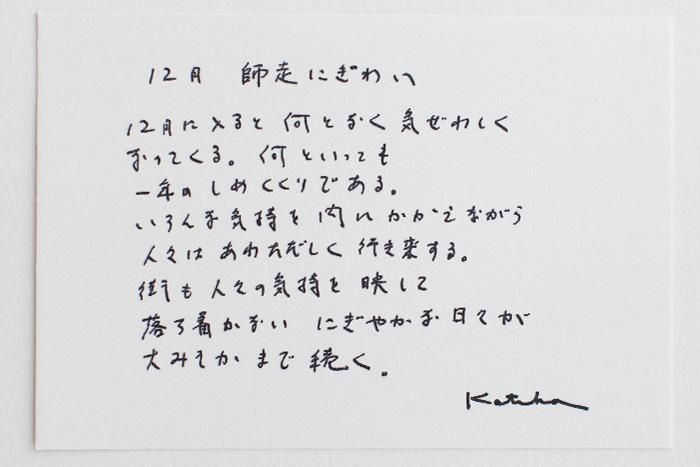 12月 師走にぎわい
12月に入ると 何となく 気ぜわしく
なってくる。何といっても
一年の しめくくりである。
いろんな気持を 内に かかえながら
人々は あわただしく 行き来する。
街も 人々の気持を 映して
落ち着かない にぎやかな 日々が
大みそかまで 続く。